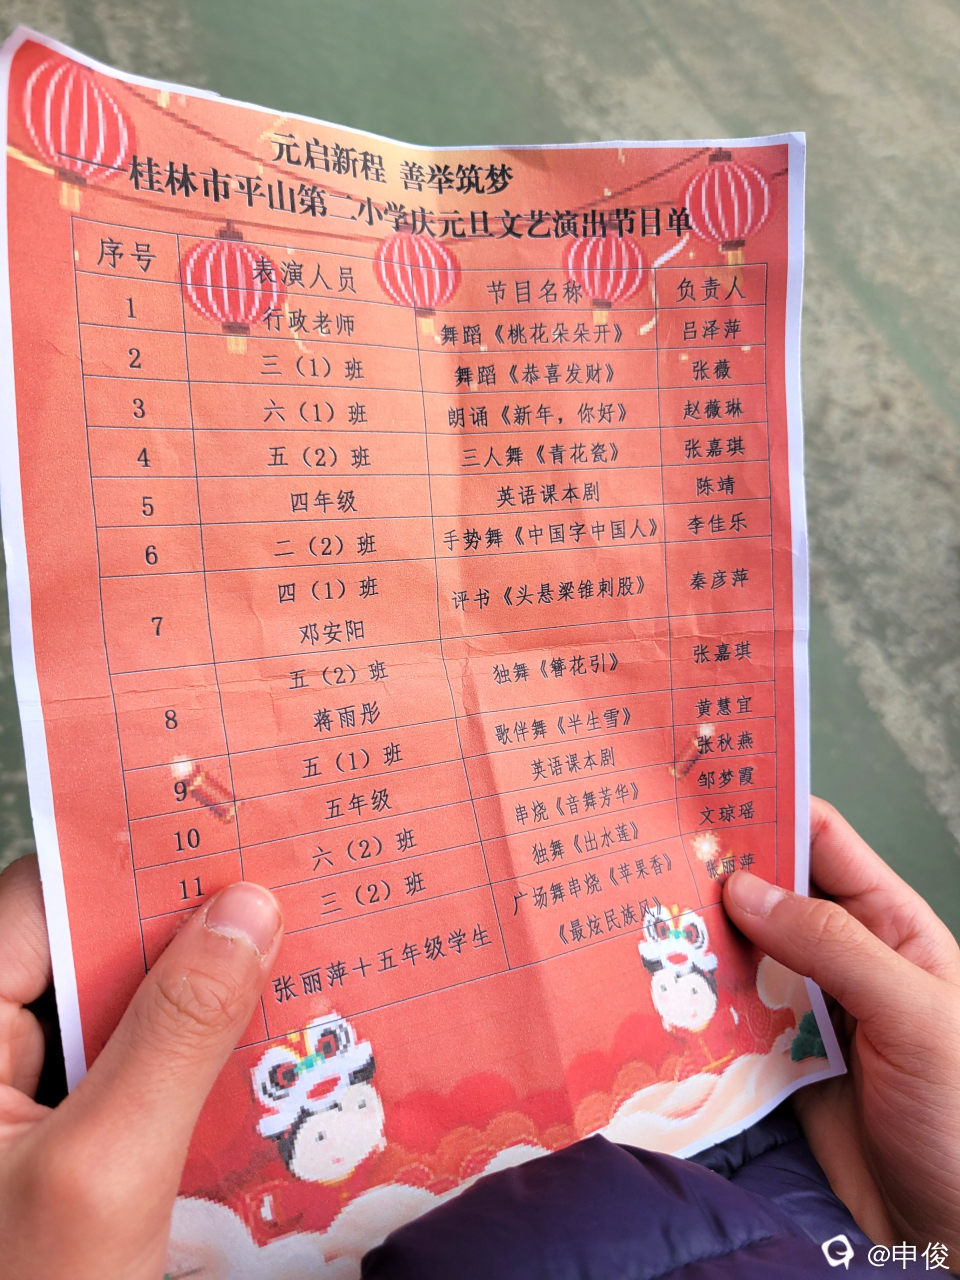 元启新程 善举筑梦
——桂林市平山第二小学庆元旦文艺演出节目单
序号 表演人员 节目名称 负责人
1 行政老师 舞蹈《桃花朵朵开》 吕泽萍
2 三（1）班 舞蹈《恭喜发财》 张薇
3 六（1）班 朗诵《新年，你好》 赵薇琳
4 五（2）班 三人舞《青花瓷》 张嘉琪
5 四年级 英语课本剧 陈靖
6 二（2）班 手势舞《中国字中国人》 李佳乐
7 四（1）班 邓安阳 评书《头悬梁锥刺股》 秦彦萍
8 五（2）班 蒋雨彤 独舞《簪花引》 张嘉琪
9 五（1）班 歌伴舞《半生雪》 黄慧宜
10 五年级 英语课本剧 张秋燕
11 六（2）班 串烧《音舞芳华》 邹梦霞
三（2）班 独舞《出水莲》 文琼瑶
张丽萍+五年级学生 广场舞串烧《苹果香》 张丽萍
《最炫民族风》
@申俊